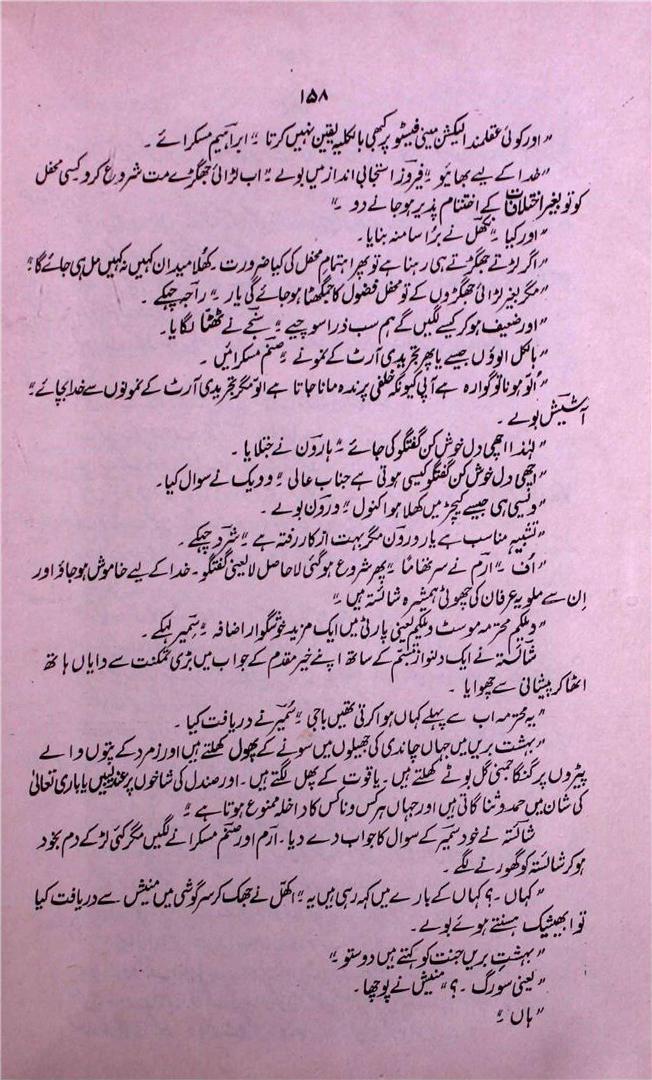 ۱۵۸
" اور کوئی عقلمند الیکشن مینی فیسٹو پر کبھی بالکلیہ یقین نہیں کرتا ۔" ابراہیم مسکرائے ۔
" خدا کے لیے بھائیو ۔" فیروز التجائی انداز میں بولے ۔" اب لڑائی جھگڑے مت شروع کرو کسی محفل
کو تو بغیر اختلافات کے اختتام پذیر ہو جانے دو ۔"
" اور کیا ۔" نے برُا سا منہ بنایا ۔
" اگر لڑتے جھگڑتے ہی رہنا ہے تو پھر اہتمامِ محفل کی کیا ضرورت ۔ کھُلا میدان کہیں نہ کہیں مل ہی جائے گا ۔"
" مگر بغیر لڑائی جھگڑوں کے تو محفل فضول کا جمگھٹا ہو جائے گی یار ۔" راجہ چہکے ۔
" اور ضعیف ہو کر کیسے لگیں گے ہم سب ذرا سوچیے ۔" سنجے نے ٹھٹا لگایا ۔
" بالکل الوؤں جیسے یا پھر تجریدی آرٹ کے نمونے ۔" صنم مسکرائیں ۔
" اُلّو ہونا تو گوارہ ہے آپی کیونکہ خلفی پرندہ مانا جاتا ہے الّو مگر تجریدی آرٹ کے نمونوں سے خدا بچائے ۔"
آشیش بولے ۔
" لہٰذا اچھی دل خوش کن گفتگو کی جائے ۔" ہارون نے جتلایا ۔
" اچھی دل خوش کن گفتگو کیسی ہوتی ہے جناب عالی ۔" وویک نے سوال کیا ۔
" ویسی ہی جیسے کیچڑ میں کھلا ہوا کنول ۔" ورون بولے ۔
" تشبیہہ مناسب ہے یار ورون مگر بہت از کار رفتہ ہے ۔" شرد چہکے ۔
" اُف ۔" ارم نے سر تھاما ۔" پھر شروع ہو گئی لاحاصل لایعنی گفتگو ۔ خدا کے لیے خاموش ہو جاؤ اور
اِن سے ملو یہ عرفان کی چھوٹی ہمشیرہ شائستہ ہیں ۔"
" ویلکم محترمہ موسٹ ویلکم یعنی پارٹی میں ایک مزید خوشگوار اضافہ ۔" سمیر لپکے ۔
شائستہ نے ایک دلنواز تبسّم کے ساتھ اپنے خیر مقدم کے جواب میں بڑی تمکنت سے دایاں ہاتھ
اٹھا کر پیشانی سے چھوایا ۔
" یہ محترمہ اب سے پہلے کہاں ہوا کرتی تھیں باجی ۔" سُمیر نے دریافت کیا ۔
" بہشت بریں میں جہاں چاندی کی جھیلوں میں سونے کے پھول کھلتے ہیں اور زمرد کے پتوں والے
پیڑوں پر گنگا جمنی گل بوٹے کھلتے ہیں ۔ یاقوت کے پھل لگتے ہیں ۔ اور صندل کی شاخوں پر عندلیبیں باری تعالیٰ
کی شان میں حمد و ثنا گاتی ہیں اور جہاں ہر کس و ناکس کا داخلہ ممنوع ہوتا ہے ۔"
شائستہ نے خود سمیر کے سوال کا جواب دے دیا ۔ ارم اور صنم مسکرانے لگیں مگر کئی لڑکے دم بخود
ہو کر شائستہ کو گھورنے لگے ۔
" کہاں ۔؟ کہاں کے بارے میں کہہ رہی ہیں یہ ۔" اکھل نے جھک کر سرگوشی میں منیش سے دریافت کیا
تو ابھیشیک ہنستے ہوئے بولے ۔
" بہشتِ بریں جنت کو کہتے ہیں دوستو ۔"
" یعنی سورگ ۔؟" منیش نے پوچھا ۔
" ہاں ۔"